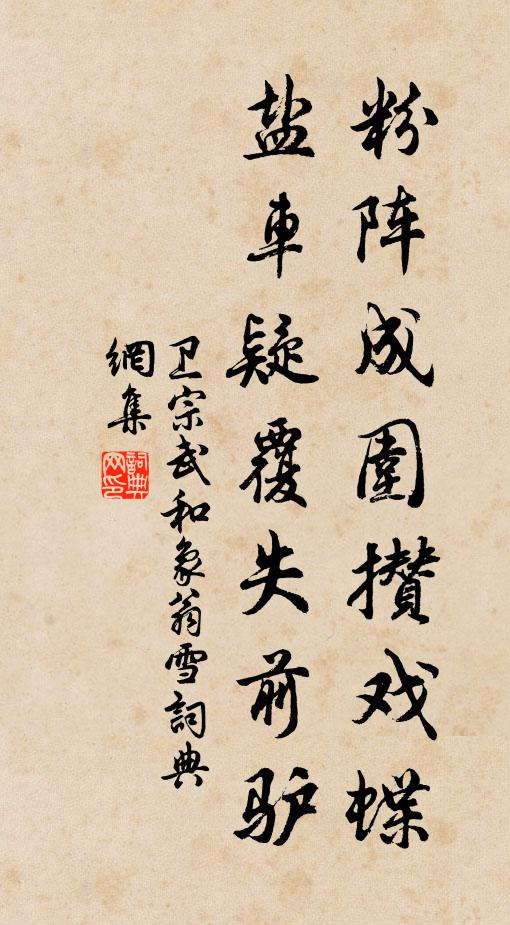 粉阵成围攒戏蝶
盐车疑覆失前驴
卫宗武和象翁雪詞典
網集
詞典网印